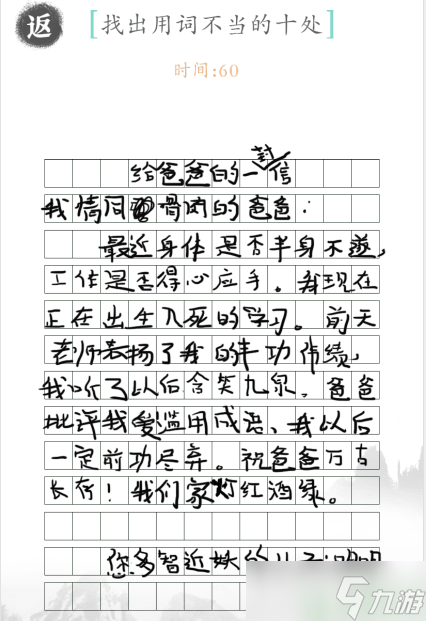 返
[找出用词不当的十处]
时间:60
给爸爸的一封信
我情同骨肉的爸爸：
最近身体是否半身不遂，
工作是否得心应手。我现在
正在出生入死的学习。前天
老师表扬了我的丰功伟绩，
我听了以后含笑九泉。爸爸
批评我爱滥用成语、我以后
一定前功尽弃。祝爸爸万古
长存！我们家灯红酒绿。
您多智近妖的儿子
九游